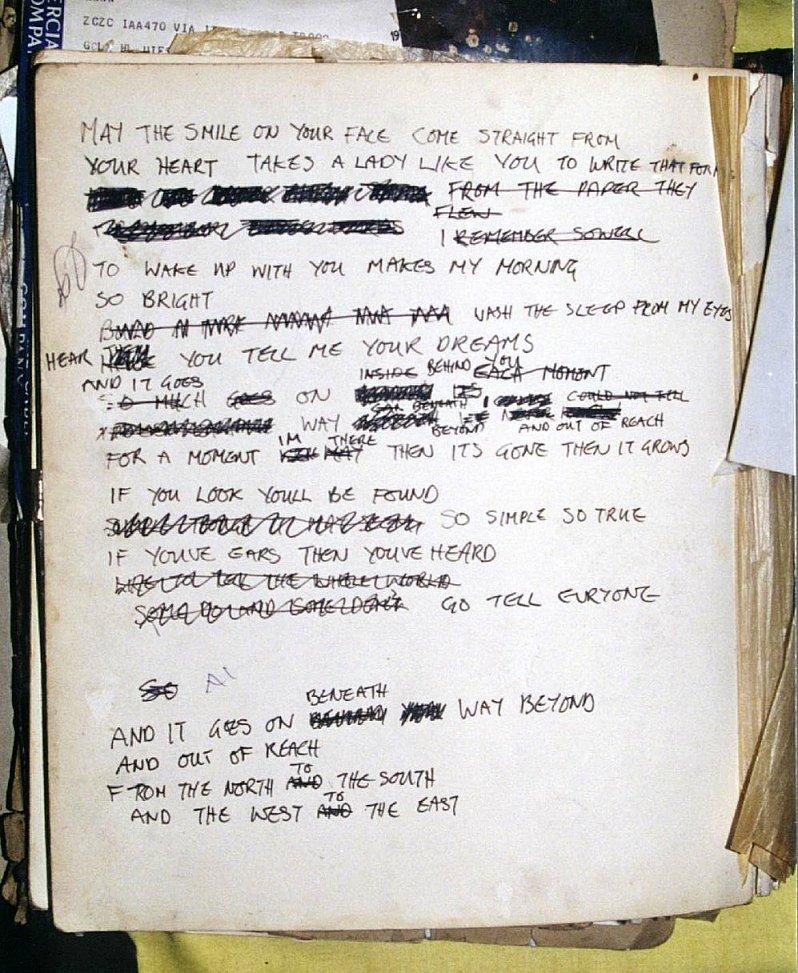 ERCIA
OMPA
ZCZC IAA470 VIA
MAY THE SMILE ON YOUR FACE COME STRAIGHT FROM
YOUR HEART TAKES A LADY LIKE YOU TO WRITE THAT FORM
FROM THE PAPER THEY
FLEW
I REMEMBER SO WELL
TO WAKE UP WITH YOU MAKES MY MORNING
SO BRIGHT
WASH THE SLEEP FROM MY EYES
HEAR YOU TELL ME YOUR DREAMS
AND IT GOES INSIDE BEHIND YOU EACH MOMENT
SO MUCH GOES ON COULD NOT TELL
WAY BEYOND AND OUT OF REACH
IM THERE
FOR A MOMENT THEN ITS GONE THEN IT GROWS
IF YOU LOOK YOULL BE FOUND
SO SIMPLE SO TRUE
IF YOUVE EARS THEN YOUVE HEARD
LIKE TO TELL THE WHOLE WORLD
SOME DO AND SOME DON'T GO TELL EVRYONE
SO
BENEATH
AND IT GOES ON WAY BEYOND
AND OUT OF REACH
TO
FROM THE NORTH AND THE SOUTH
TO
AND THE WEST AND THE EAST